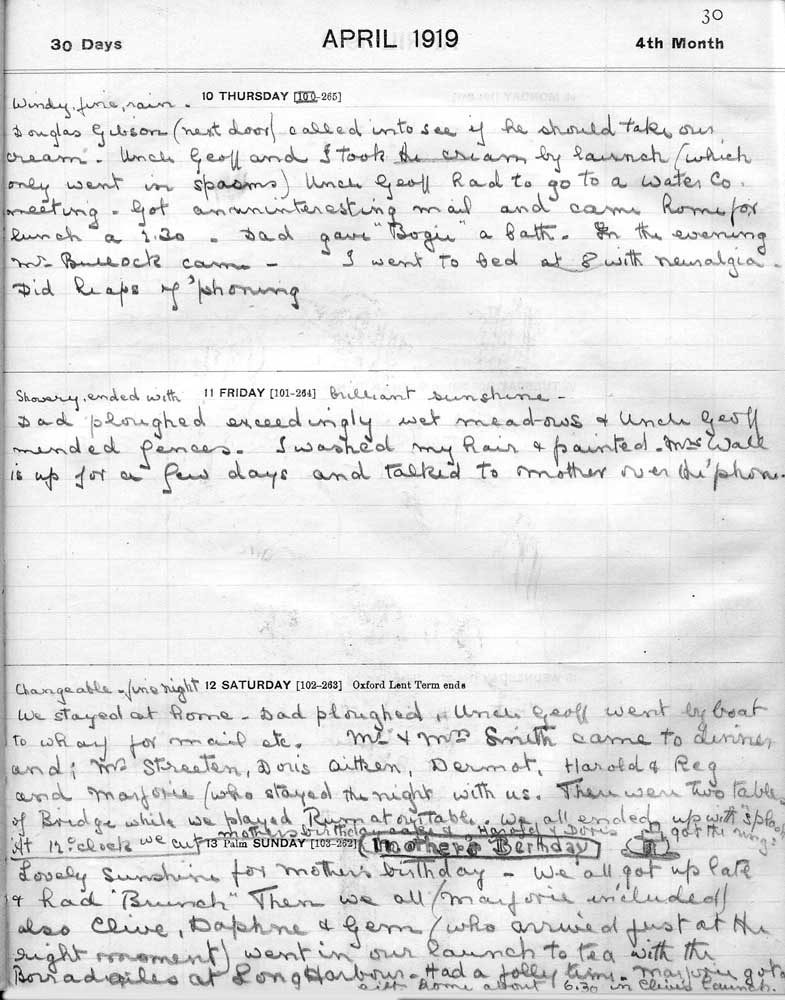 30
30 Days APRIL 1919 4th Month
Windy, fine, rain. 10 THURSDAY [100-265]
Douglas Gibson (next door) called in to see if he should take our
cream. Uncle Geoff and I took the cream by launch (which
only went in spasms) Uncle Geoff had to go to a Water Co.
meeting. Got an uninteresting mail and came home for
lunch a 1.30. Dad gave "Bogie" a bath. In the evening
Mr. Bullock came - I went to bed at 8 with neuralgia.
Did heaps of 'phoning
Showery, ended with 11 FRIDAY [101-264] brilliant sunshine -
Dad ploughed exceedingly wet meadows & Uncle Geoff
mended fences. I washed my hair & painted. Mrs Wall
is up for a few days and talked to mother over the 'phone.
Changeable - fine night 12 SATURDAY [102-263] Oxford Lent Term ends
We stayed at home - Dad ploughed, Uncle Geoff went by boat
to for mail etc. Mr & Mrs Smith came to dinner
and; Mr Streeten, Doris Aitken, Dermot, Harold & Reg
and Marjorie (who stayed the night with us. There were two tables
of Bridge while we played Rum at our table. We all ended up with "splash
At 12 o'clock we cut mother's birthday cake & Harold & Doris got the rings
13 Palm SUNDAY [103-262] (Mother's Berthday)
Lovely sunshine for mother's birthday - We all got up late
& had "Brunch" Then we all (Marjorie included)
also Clive, Daphne & Gem (who arrived just at the
right moment) went in our launch to tea with the
Borradailes at Long Harbour - Had a jolly time. Marjorie got a
home about 6.30 in Clive's launch.